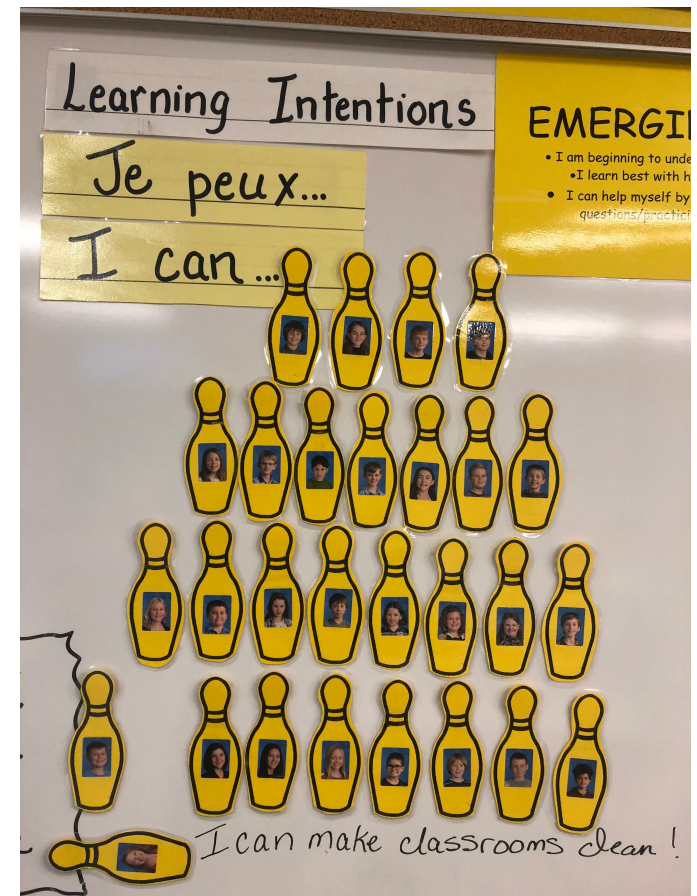 Learning Intentions
Je peux...
I can...
EMERGI
• I am beginning to unde
•I learn best with h
• I can help myself by
questions/practici
I can make classrooms clean!